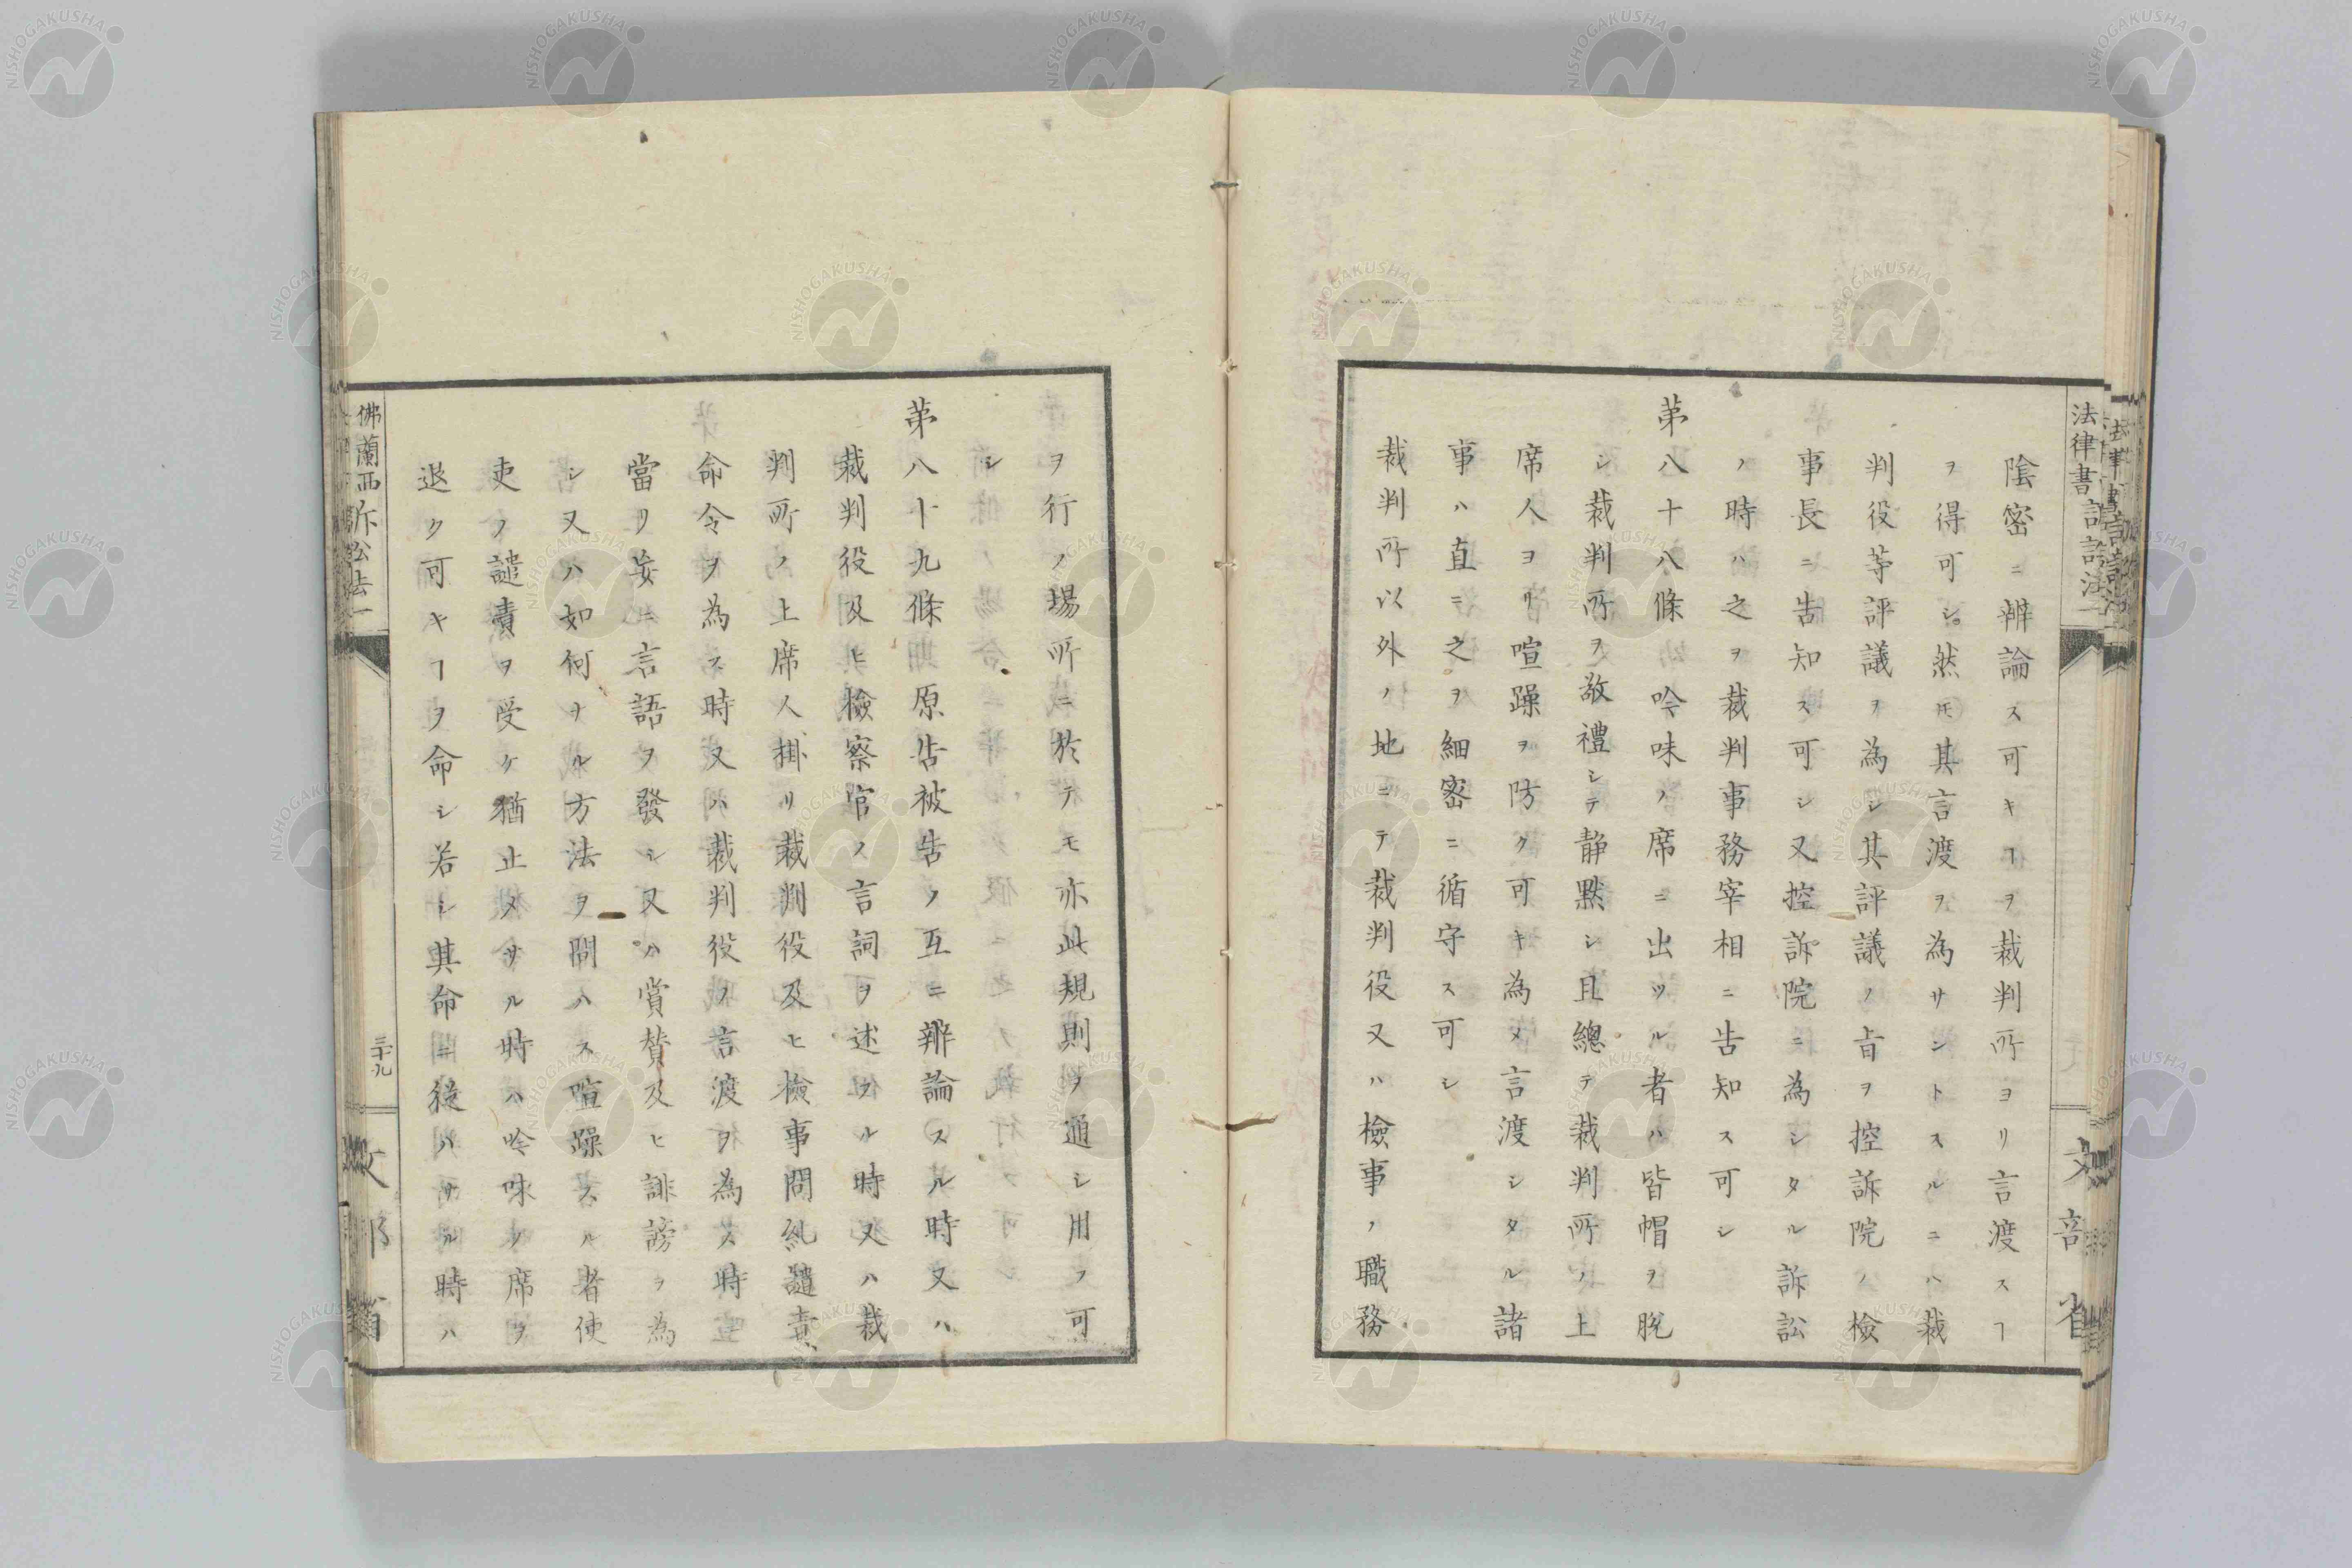 陰密ニ辨論ス可キヿヲ裁判所ヨリ言渡スヿ
ヲ得可シ。然𪜈其言渡ヲ為サントスルニハ裁
判役等評議ヲ為シ其評議ノ旨ヲ控訴院ノ檢
事長ニ告知ス可シ又控訴院ニ為シタル訴訟
ノ時ハ之ヲ裁判事務宰相ニ告知ス可シ
第八十八條 吟味ノ席ニ出ツル者ハ皆帽ヲ脱
シ裁判所ヲ敬禮シテ静黙シ且總テ裁判所ノ上
席人ヨリ喧躁ヲ防ク可キ為メ言渡シタル諸
事ハ直ニ之ヲ細密ニ循守ス可シ
裁判所以外ノ地ニテ裁判役又ハ檢事ノ職務
ヲ行ノ場所ニ於テモ亦此規則ヲ通シ用フ可
シ
第八十九條 原告被告ノ互ニ辨論スル時又ハ
裁判役及ヒ檢察官ノ言詞ヲ述フル時又ハ裁
判所ノ上席人掛リ裁判役及ヒ檢事問糺譴責
命令ヲ為ス時又ハ裁判役ノ言渡ヲ為ス時
當リ妄ニ言語ヲ發シ又ハ賞賛及ヒ誹謗ヲ為
シ又ハ如何ナル方法ヲ問ハス喧躁スル者使
吏ノ譴責ヲ受ケ猶止メサル時ハ吟味ノ席ヲ
退ク可キヿヲ命シ若シ其命ニ従ハサル時ハ
佛蘭西訴訟法一
三十九
文部省
法律書
文部省
NISHOGAKUSHA